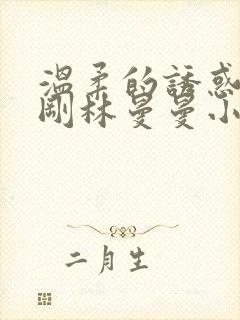 溫柔的誘惑
剛林曼曼小
二月生